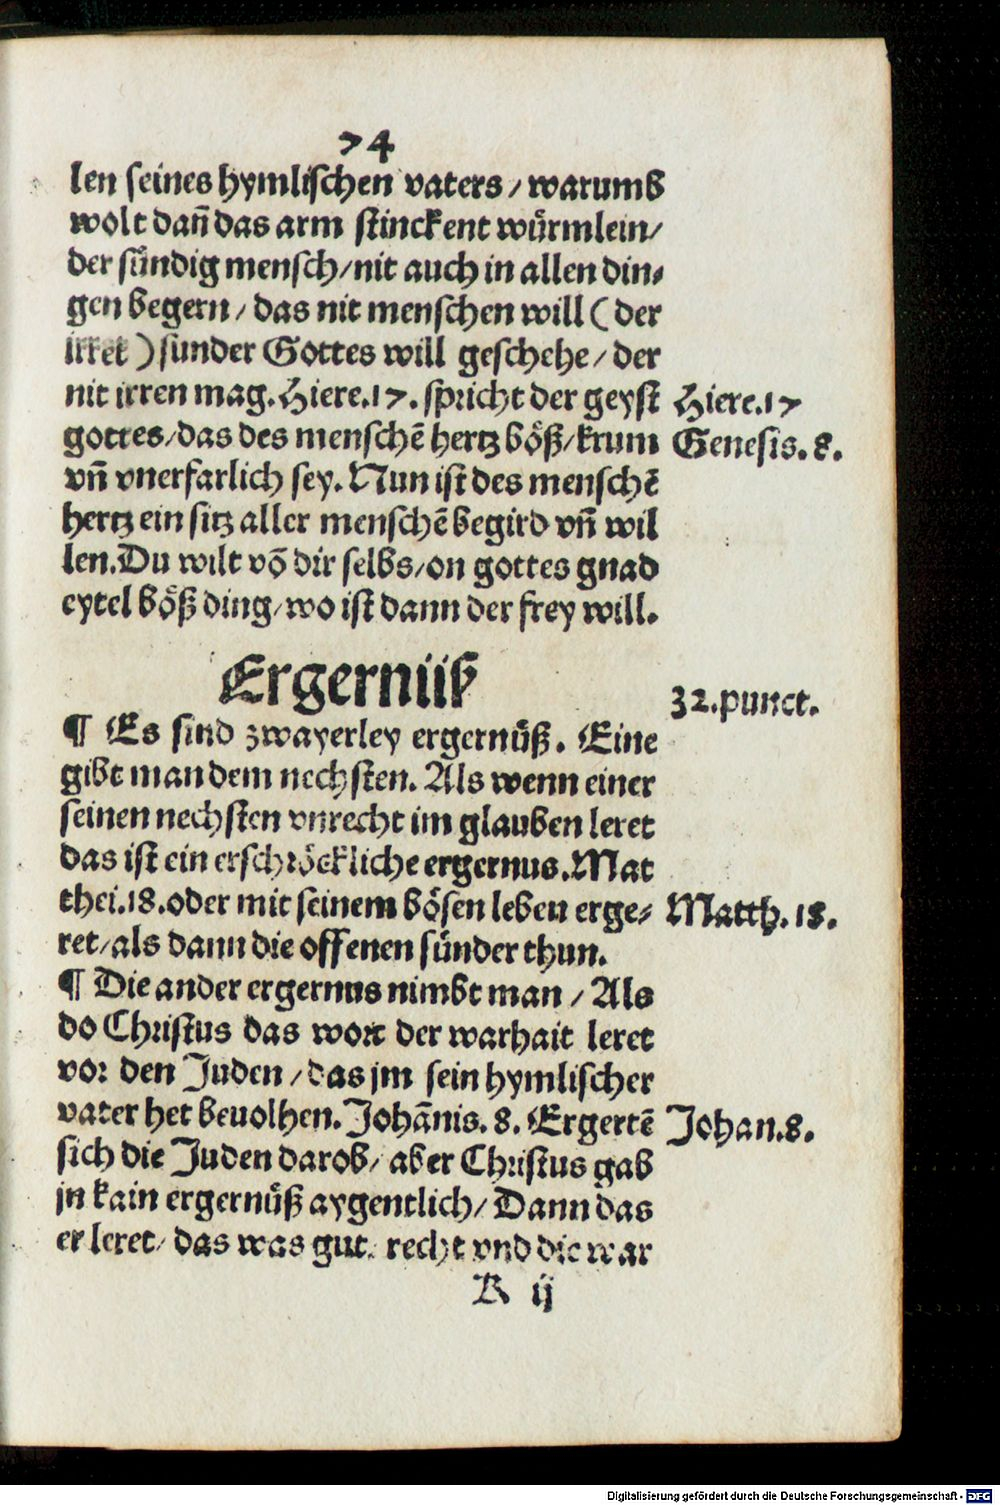 74
len seines hymlischen vaters / warumb
wolt dañ das arm stinckent würmlein/
der sündig mensch/nit auch in allen din⸗
gen begern / das nit menschen will ( der
irret ) sunder Gottes will geschehe / der
nit irren mag. Hiere.17. spricht der geyst
Hiere.17
gottes/das des menschē hertz böß/krum
Genesis. 8.
vñ vnerfarlich sey. Nun ist des menschē
hertz ein sitz aller menschē begird vñ wil
len. Du wilt vō dir selbs/on gottes gnad
eytel böß ding/wo ist dann der frey will.
Ergernüß
32.punct.
¶ Es sind zwayerley ergernüß. Eine
gibt man dem nechsten. Als wenn einer
seinen nechsten vnrecht im glauben leret
das ist ein erschröckliche ergernus. Mat
thei.18. oder mit seinem bösen leben erge⸗
Matth. 18.
ret/als dann die offenen sünder thun.
¶ Die ander ergernus nimbt man / Als
do Christus das wort der warhait leret
vor den Juden / das jm sein hymlischer
vater het beuolhen. Johānis. 8. Ergertē
Johan.8.
sich die Juden darob/ aber Christus gab
jn kain ergernüß aygentlich/ Dann das
er leret/ das was gut/ recht vnd die war
K ij
Digitalisierung gefördert durch die Deutsche Forschungsgemeinschaft - DFG